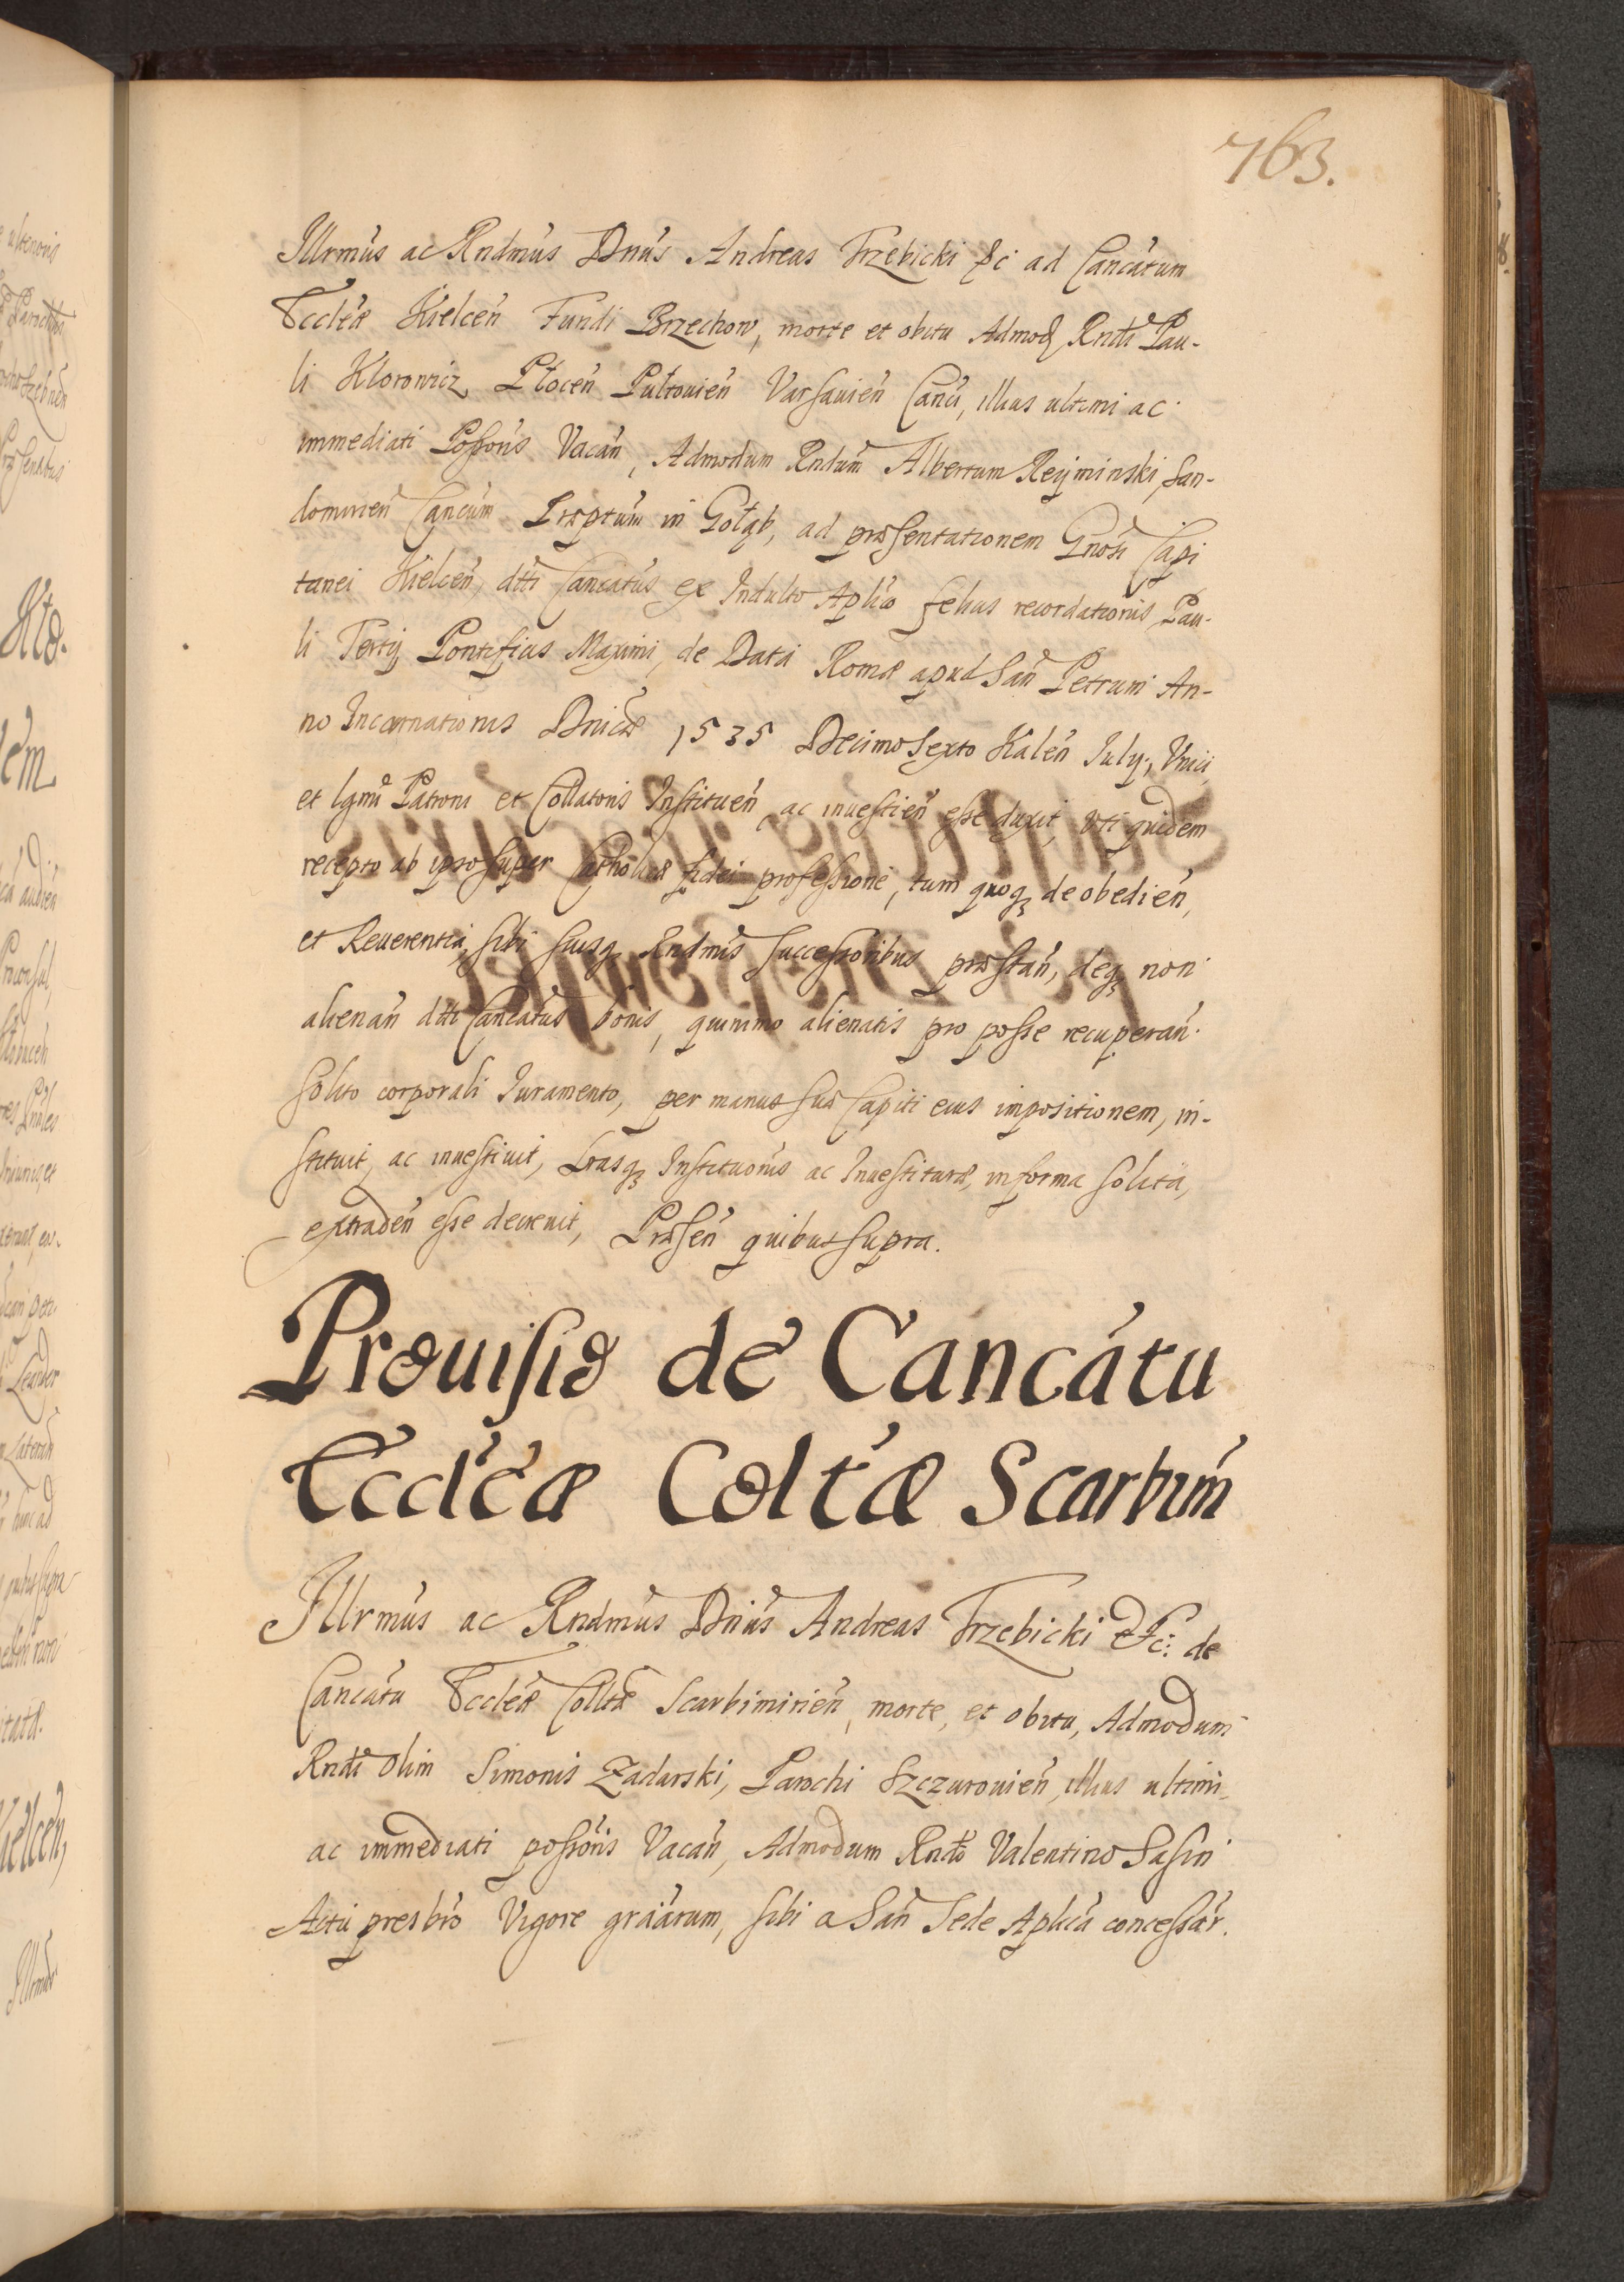 763.
Illrmus ac Rndmus Dnus Andreas Trzebicki &c ad Cancatum
Eccleæ Kielcen Fundi Brzechow, morte et obitu Admod Rndi Pau-
li Klorowicz Płocen Pultouien Varsauien Canci, illius ultimi ac
immediati Possoris Vacan, Admodum Rndum Albertum Reyminski, San-
domirien Cancum Præptum in Gołąb, ad præsentationem Gnosi Capi
tanei Kielcen, dti Cancatus ex Indulto Aplico felicis recordationis Pau-
li Tertij Pontificis Maximi, de Data Romæ apud San Petrum An-
no Incarnationis Dnicæ 1535 Decimo Sexto Kalen July, Unici
et lgmi Patroni et Collatoris Instituen ac inuestien esse duxit, Vti quidem
recepto ab ipso super Catholicæ fidei professione, tum quoq de obedien,
et Reuerentia, sibi suisq Rndmis Successoribus præstan, deq non
alienan dti Cancatus bonis, quinimo alienatis pro posse recuperan
solito corporali Iuramento, per manus suæ Capiti eius impositionem, in-
stituit, ac inuestiuit, Lrasq Institutionis ac Inuestituræ, in forma solita,
extraden esse decreuit, Præsen quibus supra.
Prouisio de Cancatu
Eccleæ Coltæ Scarbim
Illrmus ac Rndmus Dnus Andreas Trzebicki &c: de
Cancatu Eccleæ Colltæ Scarbimirien, morte, et obitu, Admodum
Rndi olim Simonis Zadarski, Parochi Szczurouien, illius ultimi
ac immediati possoris Vacan, Admodum Rndo Valentino Sasin
Actu presbro Vigore graarum, sibi a San Sede Aplica concessar.